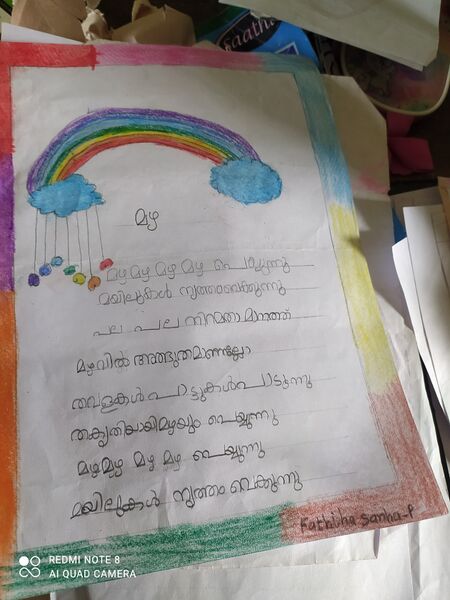 Saathi
മഴ
മഴ മഴ മഴ മഴ പെയ്യുന്നു
മയിലുകൾ നൃത്തംവെക്കുന്നു
പല പല നിറമതാ മാനത്ത്
മഴവിൽ അത്ഭുതമാണല്ലോ
തവളകൾ പാട്ടുകൾപാടുന്നു
തകൃതിയായിമഴയും പെയ്യുന്നു
മഴമഴ മഴ മഴ പെയ്യുന്നു
മയിലുകൾ നൃത്തം വെക്കുന്നു
Fathiha sanha-P
REDMI NOTE 8
AI QUAD CAMERA